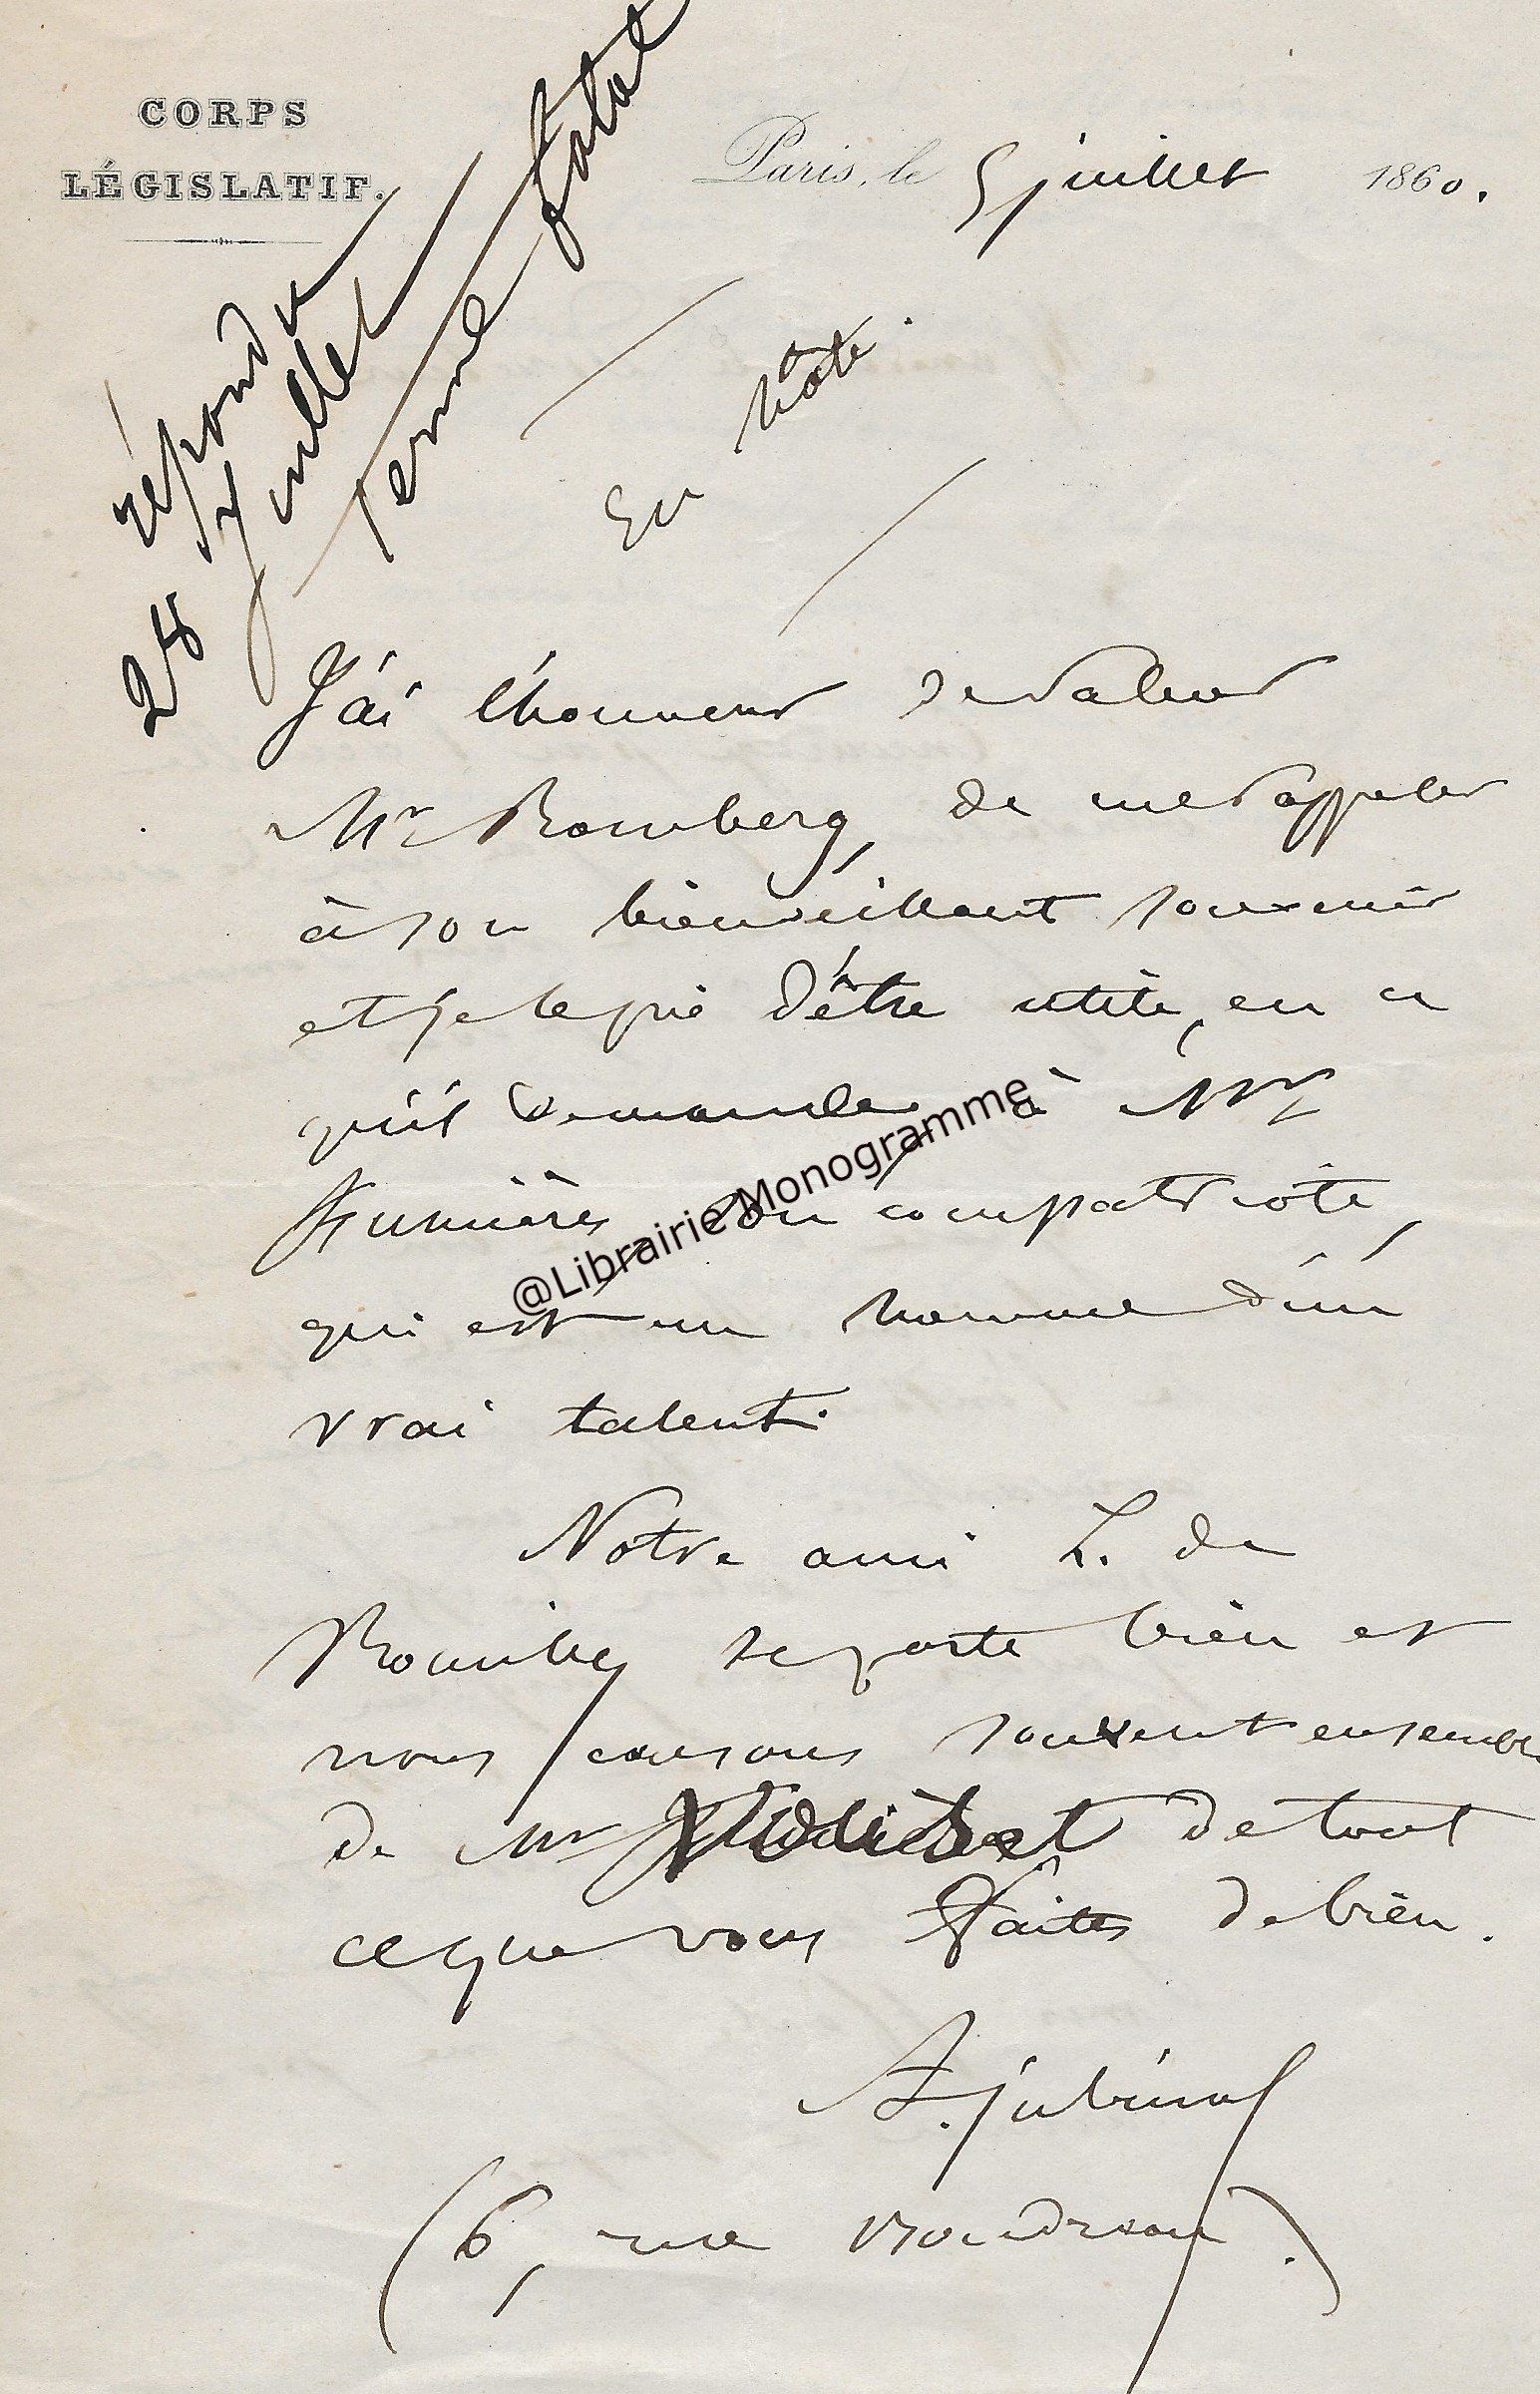 CORPS
LÉGISLATIF.
Paris, le 5 juillet 1860.
répondu
28 juillet
terme fatal
En hâte.
J'ai l'honneur de saluer
Mr Romberg, de me rappeler
à son bienveillant souvenir
et je le prie d'être utile, en ce
qu'il demande à Mr
son compatriote,
qui est un homme d'un
vrai talent.
Notre ami L. de
Romilly se porte bien et
nous causons souvent ensemble
de Mr et de tout
ce que vous faites de bien.
A. jubinal
(6, rue Boudreau.)
@Librairie Monogramme